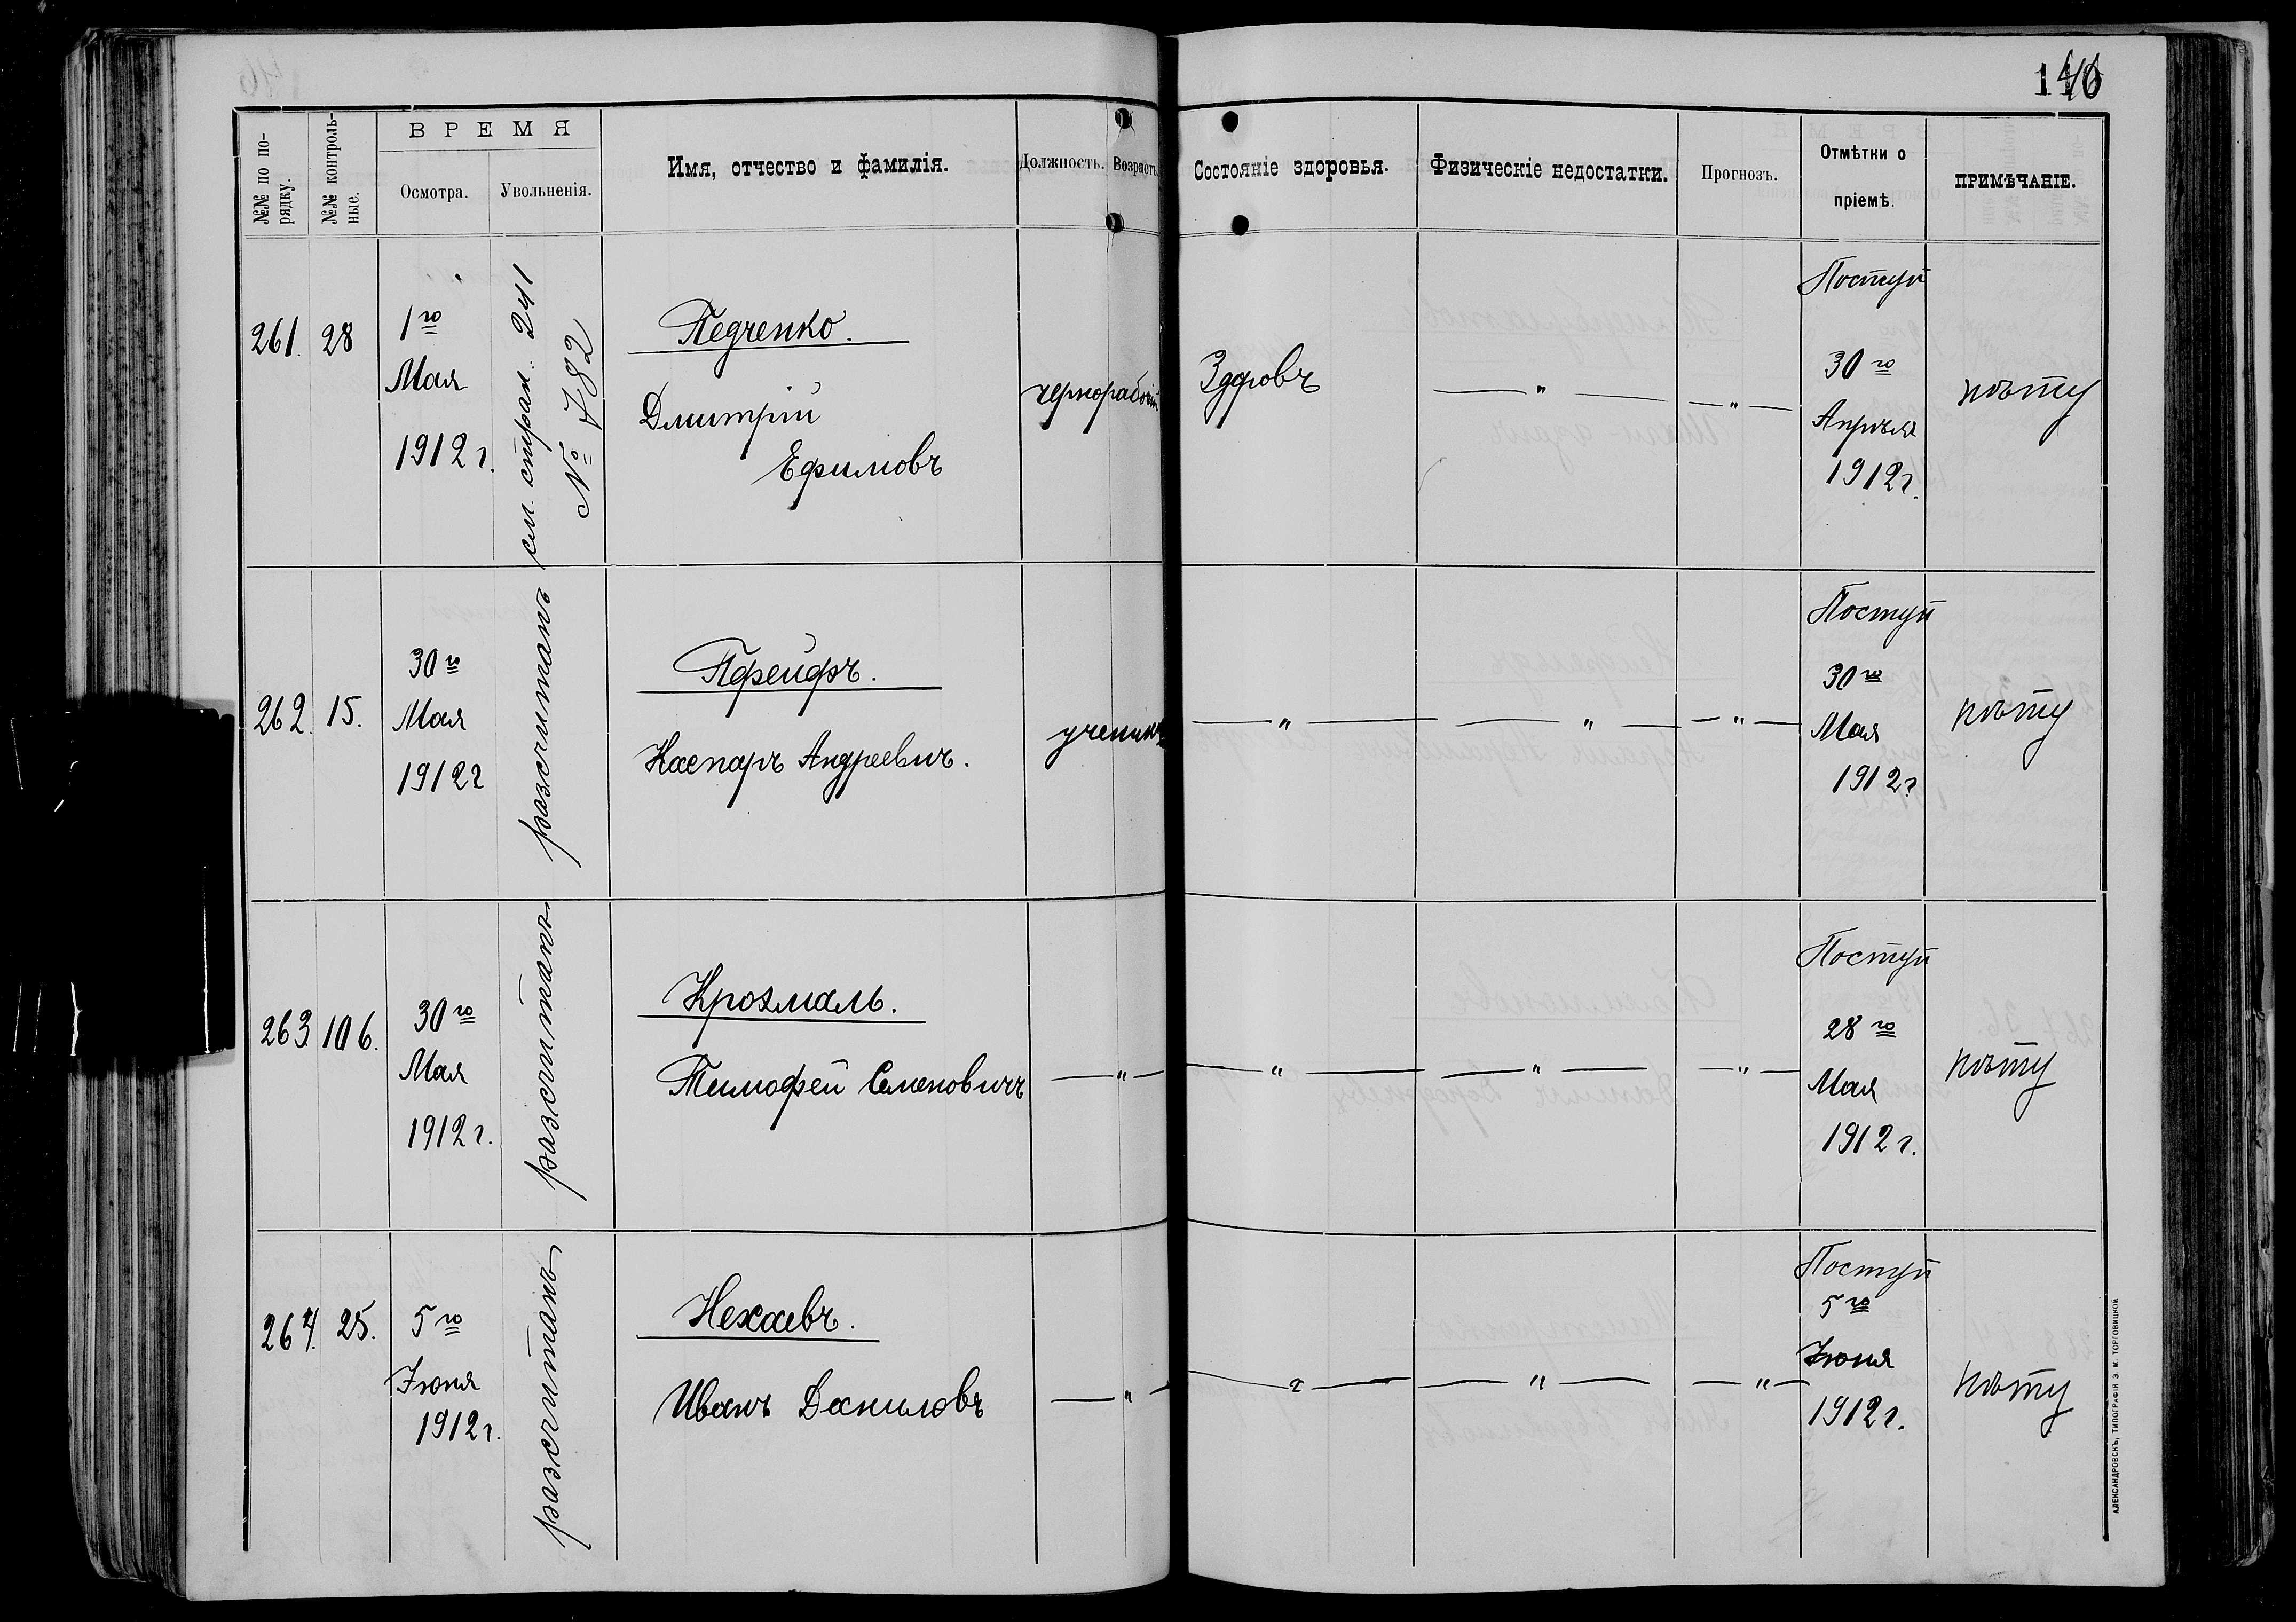 146
№№ по по-
рядку.
№№ контроль-
ные.
ВРЕМЯ
Осмотра.
Увольненія.
Имя, отчество и фамилія.
Должность.
Возрастъ.
Состояніе здоровья.
Физическіе недостатки.
Прогнозъ.
Отмѣтки о
пріемѣ.
ПРИМѢЧАНІЕ.
261. 28
1го
Мая
1912 г.
см. стран. 241
№ 782
Педченко.
Дмитрій
Ефимовъ
чернорабочій
Здоровъ
— " —
— " —
Поступ
30го
Апрѣля
1912 г.
нѣту
262. 15.
30го
Мая
1912 г
разсчитанъ
Пфейфъ.
Каспаръ Андреевич.
ученикъ
— " —
— " —
— " —
Поступ
30го
Мая
1912 г
нѣту
263. 106.
30го
Мая
1912 г.
разсчитанъ
Крохмаль.
Тимофей Семеновичъ
— " —
— " —
— " —
— " —
Поступ
28го
Мая
1912 г.
нѣту
264. 25.
5го
Іюня
1912 г.
разсчитанъ
Нехаевъ.
Иванъ Даниловъ
— " —
— " —
— " —
— " —
Поступ
5го
Іюня
1912 г.
нѣту
АЛЕКСАНДРОВСКЪ, ТИПОГРАФІЯ Э. М. ТОРГОВИЦКОЙ